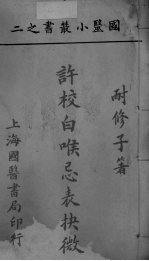 國醫小叢書之二
耐修子著
許校白喉忌表抉微
上海國醫書局印行